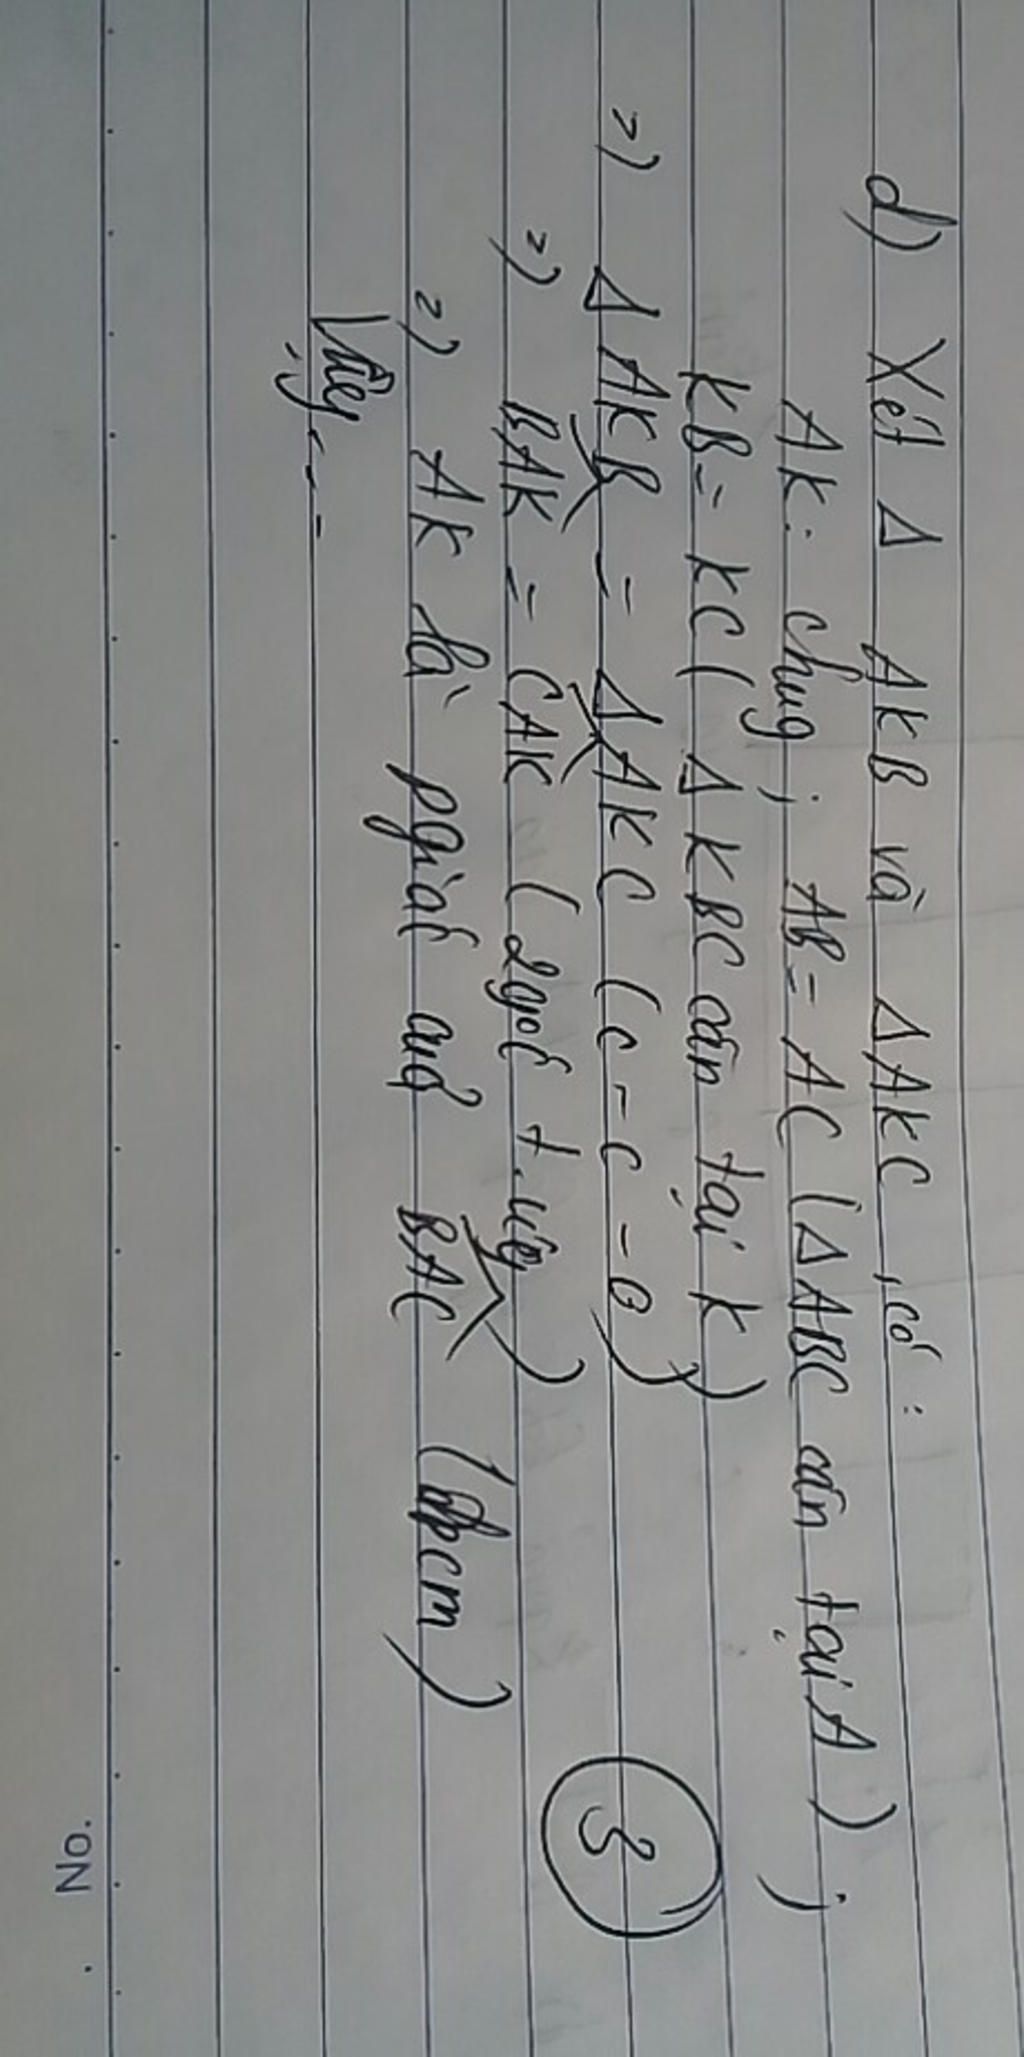 d) Xét Δ AKB và Δ AKC, có:
AK: chug; AB = AC (Δ ABC cân tại A);
KB = KC (Δ KBC cân tại K)
=) Δ AKB = Δ AKC (c - c - c)
=) BAK = CAK (2 góc t.ứg)
=) AK là pgiác củả BAC (đpcm)
Vậy ---
3
No.